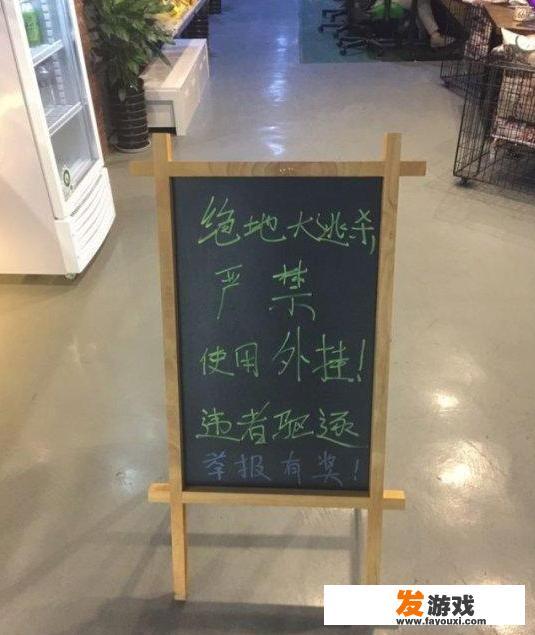 绝地大逃杀,
严禁
使用外挂!
违者驱逐
举报有奖!
发游戏
www.fayouxi.com